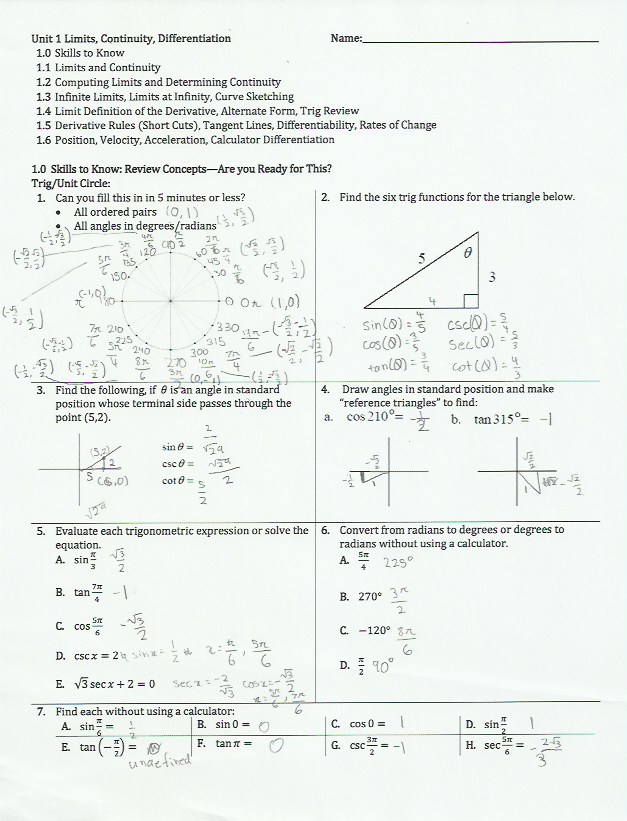 Unit 1 Limits, Continuity, Differentiation Name:
1.0 Skills to Know
1.1 Limits and Continuity
1.2 Computing Limits and Determining Continuity
1.3 Infinite Limits, Limits at Infinity, Curve Sketching
1.4 Limit Definition of the Derivative, Alternate Form, Trig Review
1.5 Derivative Rules (Short Cuts), Tangent Lines, Differentiability, Rates of Change
1.6 Position, Velocity, Acceleration, Calculator Differentiation
1.0 Skills to Know: Review Concepts—Are you Ready for This?
Trig/Unit Circle:
1. Can you fill this in in 5 minutes or less?
• All ordered pairs (0,1)
• All angles in degrees/radians
120
150
(-1,0) π 180
0 0π (1,0)
210
225
240
270
300
315
330
2. Find the six trig functions for the triangle below.
5 θ
3
4
sin(θ) = 4/5 csc(θ) = 5/4
cos(θ) = 3/5 sec(θ) = 5/3
tan(θ) = 3/4 cot(θ) = 4/3
3. Find the following, if θ is an angle in standard
position whose terminal side passes through the
point (5,2).
(5,2)
2
5
√29
sin θ = 2/√29
csc θ = √29/2
cot θ = 5/2
4. Draw angles in standard position and make
"reference triangles" to find:
a. cos 210° = -1/2 b. tan 315° = -1
5. Evaluate each trigonometric expression or solve the
equation.
A. sin π/3 √3/2
B. tan 7π/4 -1
C. cos 5π/6 -√3/2
D. csc x = 2 sin x = 1/2 x = π/6, 5π/6
E. √3 sec x + 2 = 0 sec x = -2/√3 cos x = -√3/2
6. Convert from radians to degrees or degrees to
radians without using a calculator.
A. 5π/4 225°
B. 270° 3π/2
C. −120° 8π/6
D. π/2 90°
7. Find each without using a calculator:
A. sin π/6 = 1/2 B. sin 0 = 0 C. cos 0 = 1 D. sin π/2 1
E. tan(−π/2) = undefined F. tan π = 0 G. csc 3π/2 = -1 H. sec 5π/6 = -2√3/3